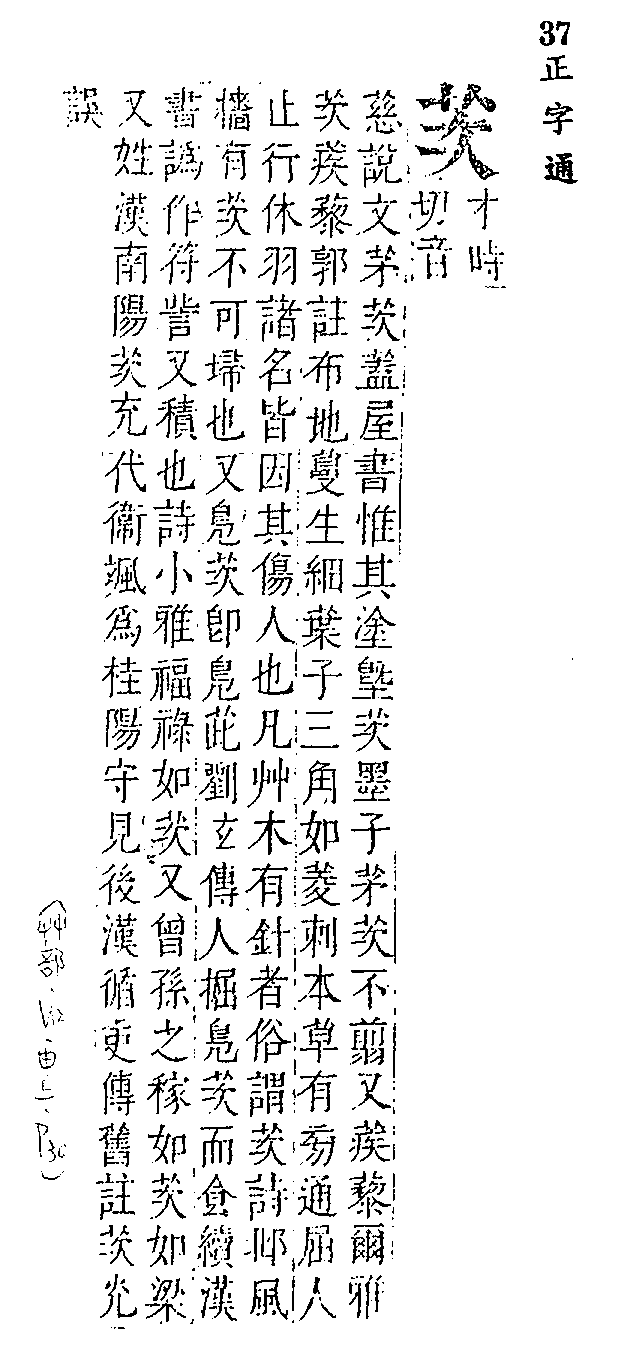 37
正字通
茨
才時
切音
慈說文茅茨葢屋書惟其塗塈茨墨子茅茨不翦又蒺藜爾雅
茨蒺藜郭註布地蔓生細葉子三角如菱刺本草有㫄通屈人
止行休羽諸名皆因其傷人也凡艸木有針者俗謂茨詩邶風
牆有茨不可埽也又鳧茨卽鳧茈劉玄傳人掘鳧茨而食續漢
書譌作符訾又積也詩小雅福祿如茨又曾孫之稼如茨如梁
又姓漢南陽茨充代衞颯爲桂陽守見後漢循吏傳舊註茨充
誤
(艸部